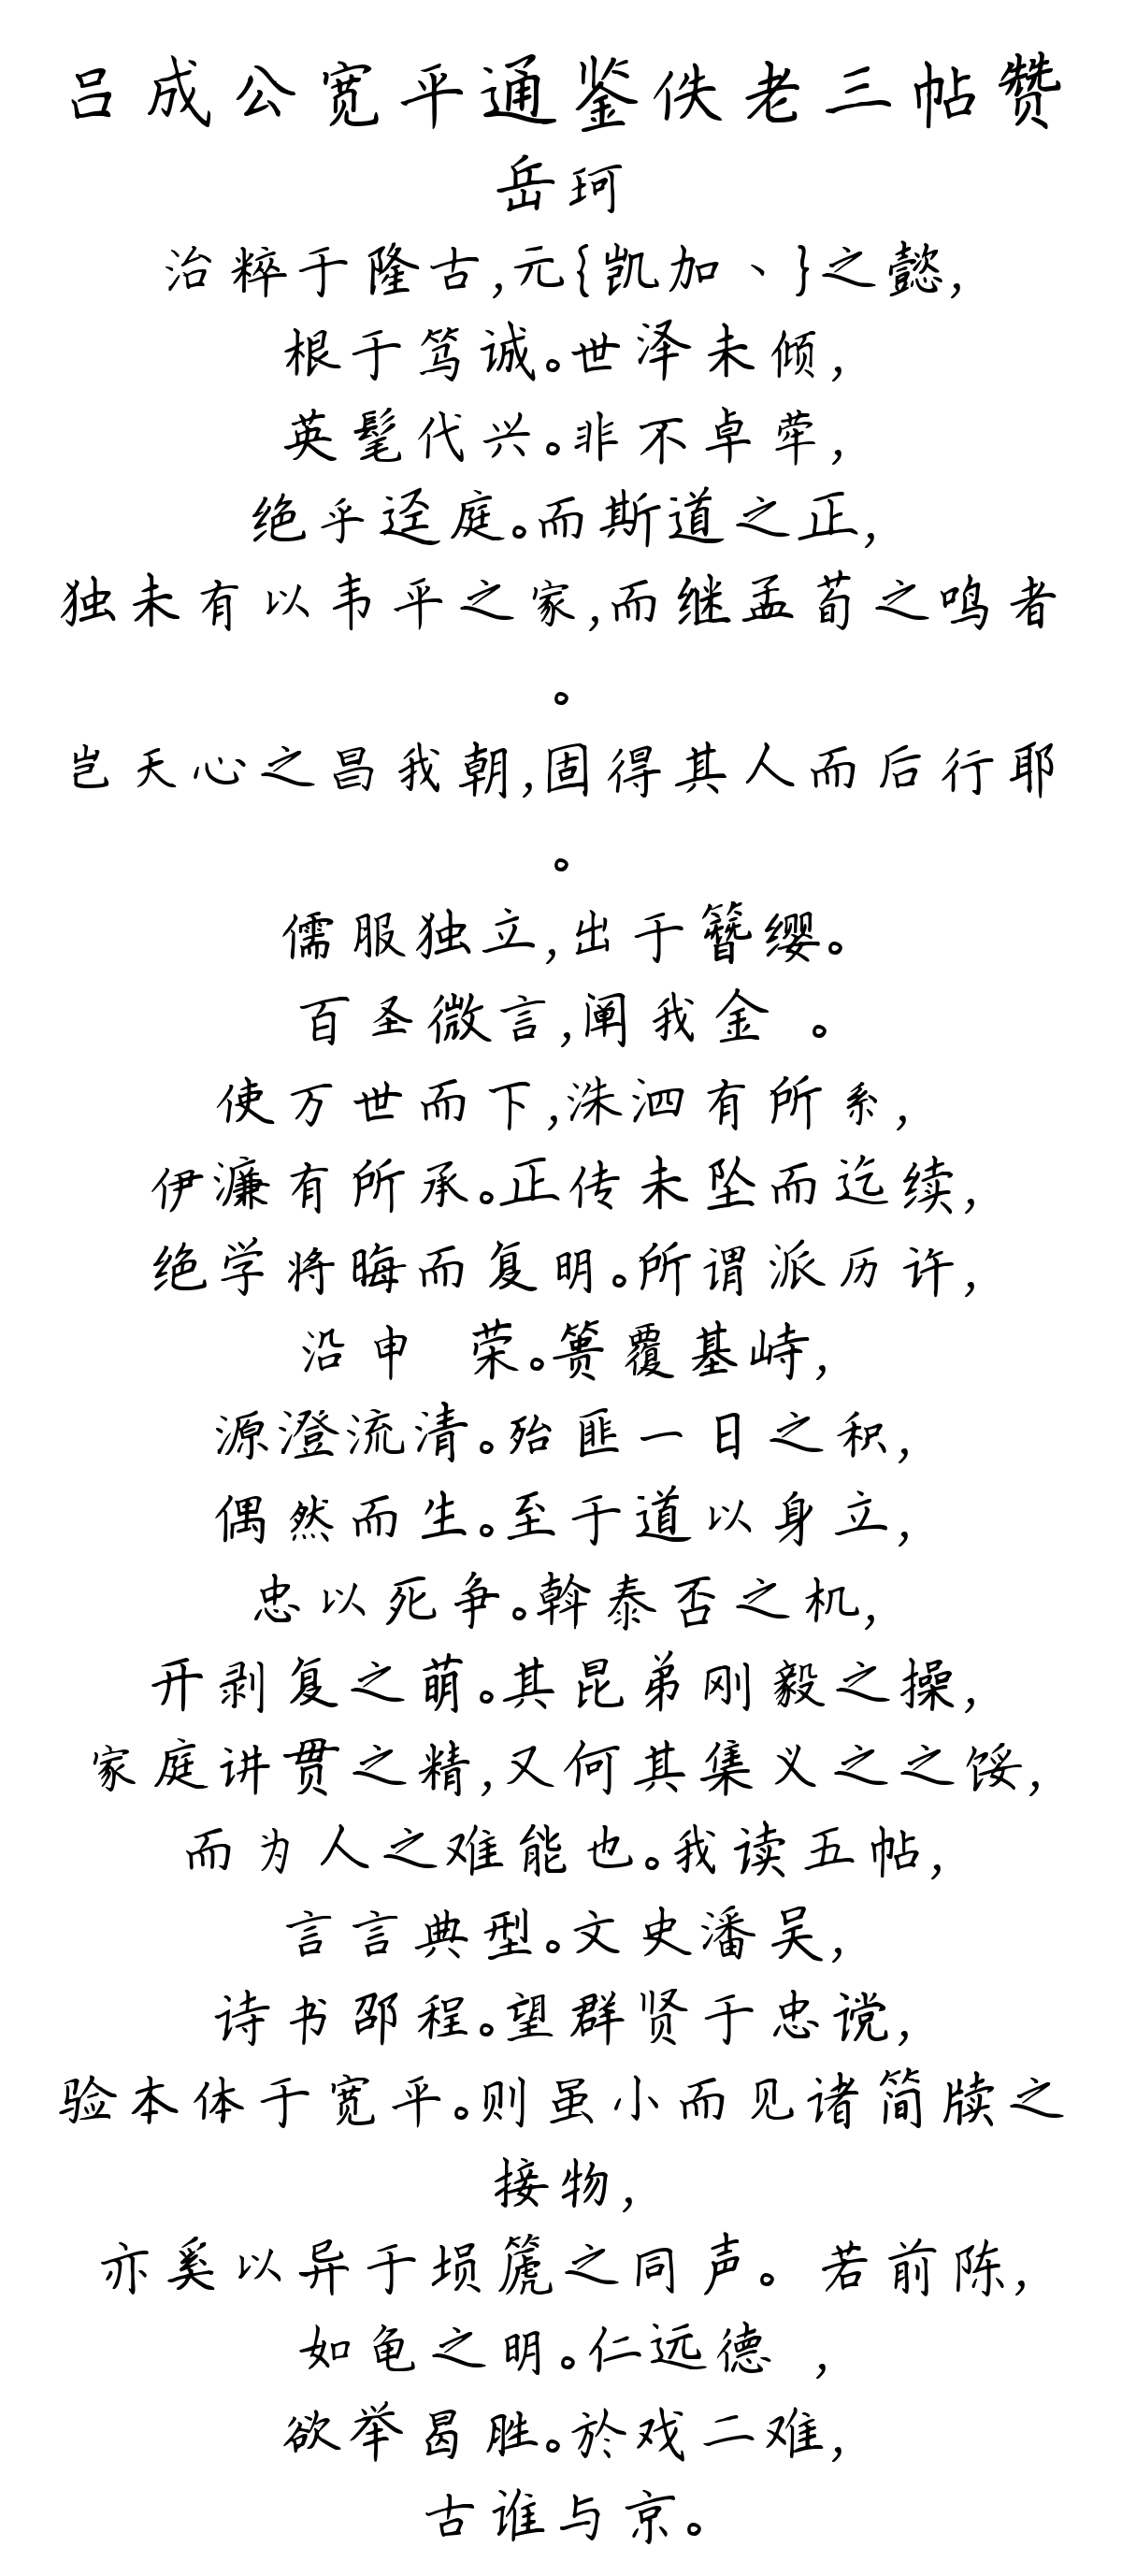 吕成公宽平通鉴佚老三帖赞
岳珂
治粹于隆古,元{凯加丶}之懿,
根于笃诚。世泽未倾,
英髦代兴。非不卓荦,
绝乎迳庭。而斯道之正,
独未有以韦平之家,而继孟荀之鸣者
。
岂天心之昌我朝,固得其人而后行耶
。
儒服独立,出于簪缨。
百圣微言,阐我金 。
使万世而下,洙泗有所系,
伊濂有所承。正传未坠而迄续,
绝学将晦而复明。所谓派历许,
沿申 荣。篑覆基峙,
源澄流清。殆匪一日之积,
偶然而生。至于道以身立,
忠以死争。斡泰否之机,
开剥复之萌。其昆弟刚毅之操,
家庭讲贯之精,又何其集义之之馁,
而为人之难能也。我读五帖,
言言典型。文史潘吴,
诗书邵程。望群贤于忠谠,
验本体于宽平。则虽小而见诸简牍之
接物,
亦奚以异于埙篪之同声。 若前陈,
如龟之明。仁远德 ,
欲举曷胜。於戏二难,
古谁与京。